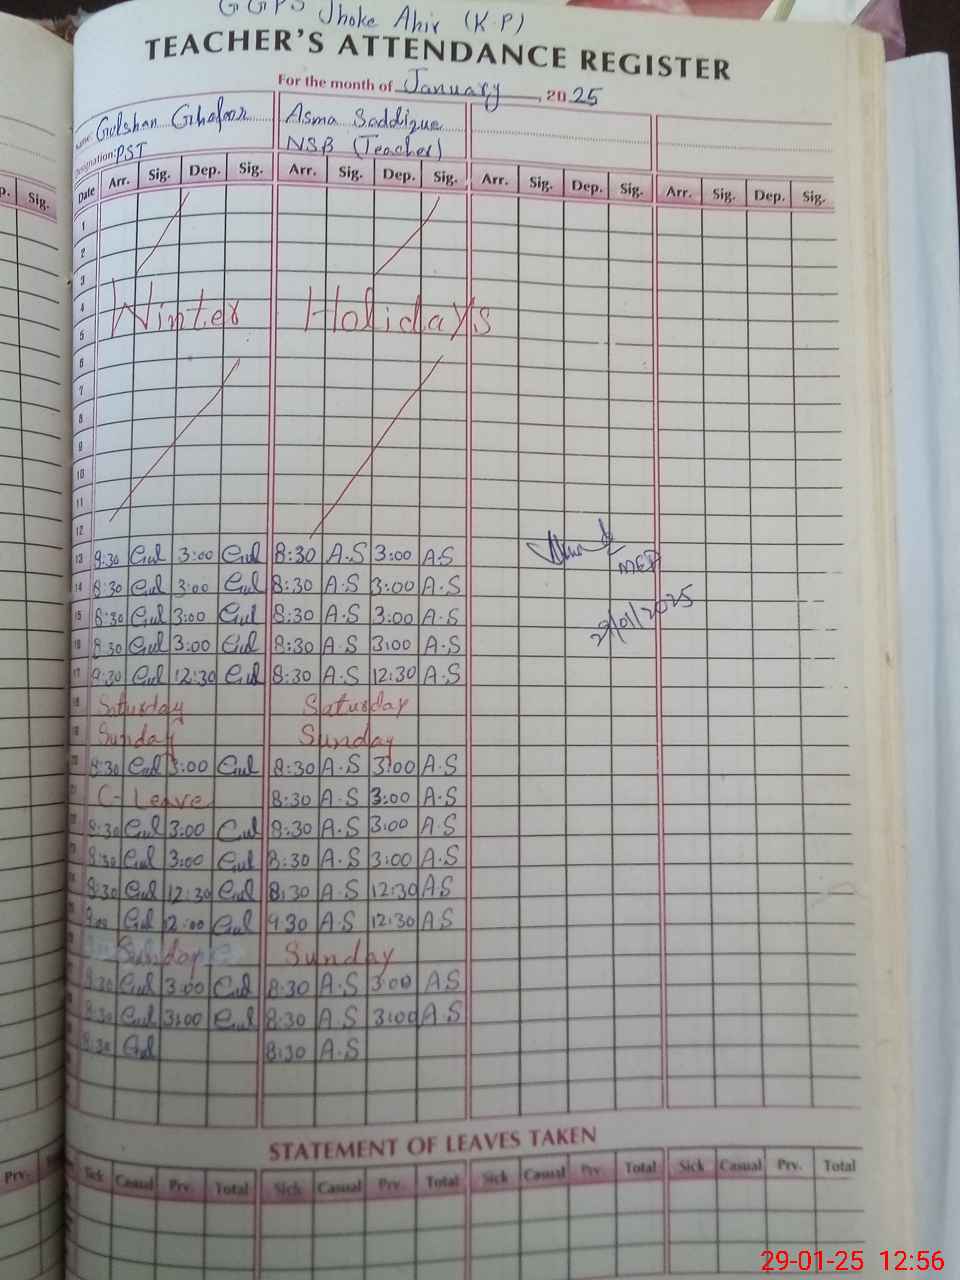 GGPS Jhoke Ahir (K.P)
TEACHER'S ATTENDANCE REGISTER
For the month of January, 2025
Name: Gulshan Ghafoor Asma Saddique
Designation: PST NSB (Teacher)
Date Arr. Sig. Dep. Sig. Arr. Sig. Dep. Sig. Arr. Sig. Dep. Sig. Arr. Sig. Dep. Sig.
Sig.
1
2
3
4
Winter Holidays
5
6
7
8
9
10
11
12
13 8:30 Gul 3:00 Gul 8:30 A.S 3:00 A.S
14 8:30 Gul 3:00 Gul 8:30 A.S 3:00 A.S
MEA
15 8:30 Gul 3:00 Gul 8:30 A.S 3:00 A.S
29/01/2025
16 8:30 Gul 3:00 Gul 8:30 A.S 3:00 A.S
17 8:30 Gul 12:30 Gul 8:30 A.S 12:30 A.S
18 Saturday Saturday
19 Sunday Sunday
20 8:30 Gul 3:00 Gul 8:30 A.S 3:00 A.S
21 C-Leave 8:30 A.S 3:00 A.S
8:30 Gul 3:00 Gul 8:30 A.S 3:00 A.S
8:30 Gul 3:00 Gul 8:30 A.S 3:00 A.S
8:30 Gul 12:30 Gul 8:30 A.S 12:30 A.S
9:00 Gul 12:00 Gul 9:30 A.S 12:30 A.S
Sunday Sunday
8:30 Gul 3:00 Gul 8:30 A.S 3:00 A.S
8:30 Gul 3:00 Gul 8:30 A.S 3:00 A.S
8:30 Gul 8:30 A.S
STATEMENT OF LEAVES TAKEN
Prv. Sick Casual Prv. Total Sick Casual Prv. Total Sick Casual Prv. Total Sick Casual Prv. Total
29-01-25 12:56